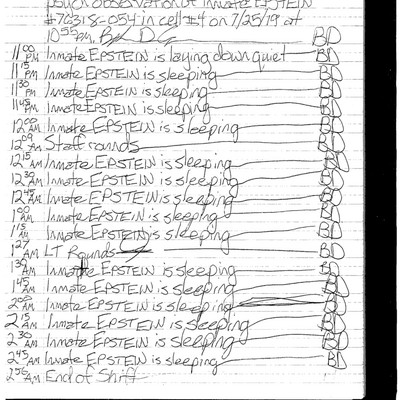 psych observation of Inmate EPSTEIN
#76318-054 in cell #4 on 7/25/19 at
10:55 PM.
11:00 PM Inmate EPSTEIN is laying down quiet BD
11:15 PM Inmate EPSTEIN is sleeping BD
11:30 PM Inmate EPSTEIN is sleeping BD
11:45 PM Inmate EPSTEIN is sleeping BD
12:00 AM Inmate EPSTEIN is sleeping BD
12:09 AM Staff rounds BD
12:15 AM Inmate EPSTEIN is sleeping BD
12:30 AM Inmate EPSTEIN is sleeping BD
12:45 AM Inmate EPSTEIN is sleeping BD
1:00 AM Inmate EPSTEIN is sleeping BD
1:15 AM Inmate EPSTEIN is sleeping BD
1:27 AM LT Rounds BD
1:30 AM Inmate EPSTEIN is sleeping BD
1:45 AM Inmate EPSTEIN is sleeping BD
2:00 AM Inmate EPSTEIN is sleeping BD
2:15 AM Inmate EPSTEIN is sleeping BD
2:30 AM Inmate EPSTEIN is sleeping BD
2:45 AM Inmate EPSTEIN is sleeping BD
2:56 AM End of Shift